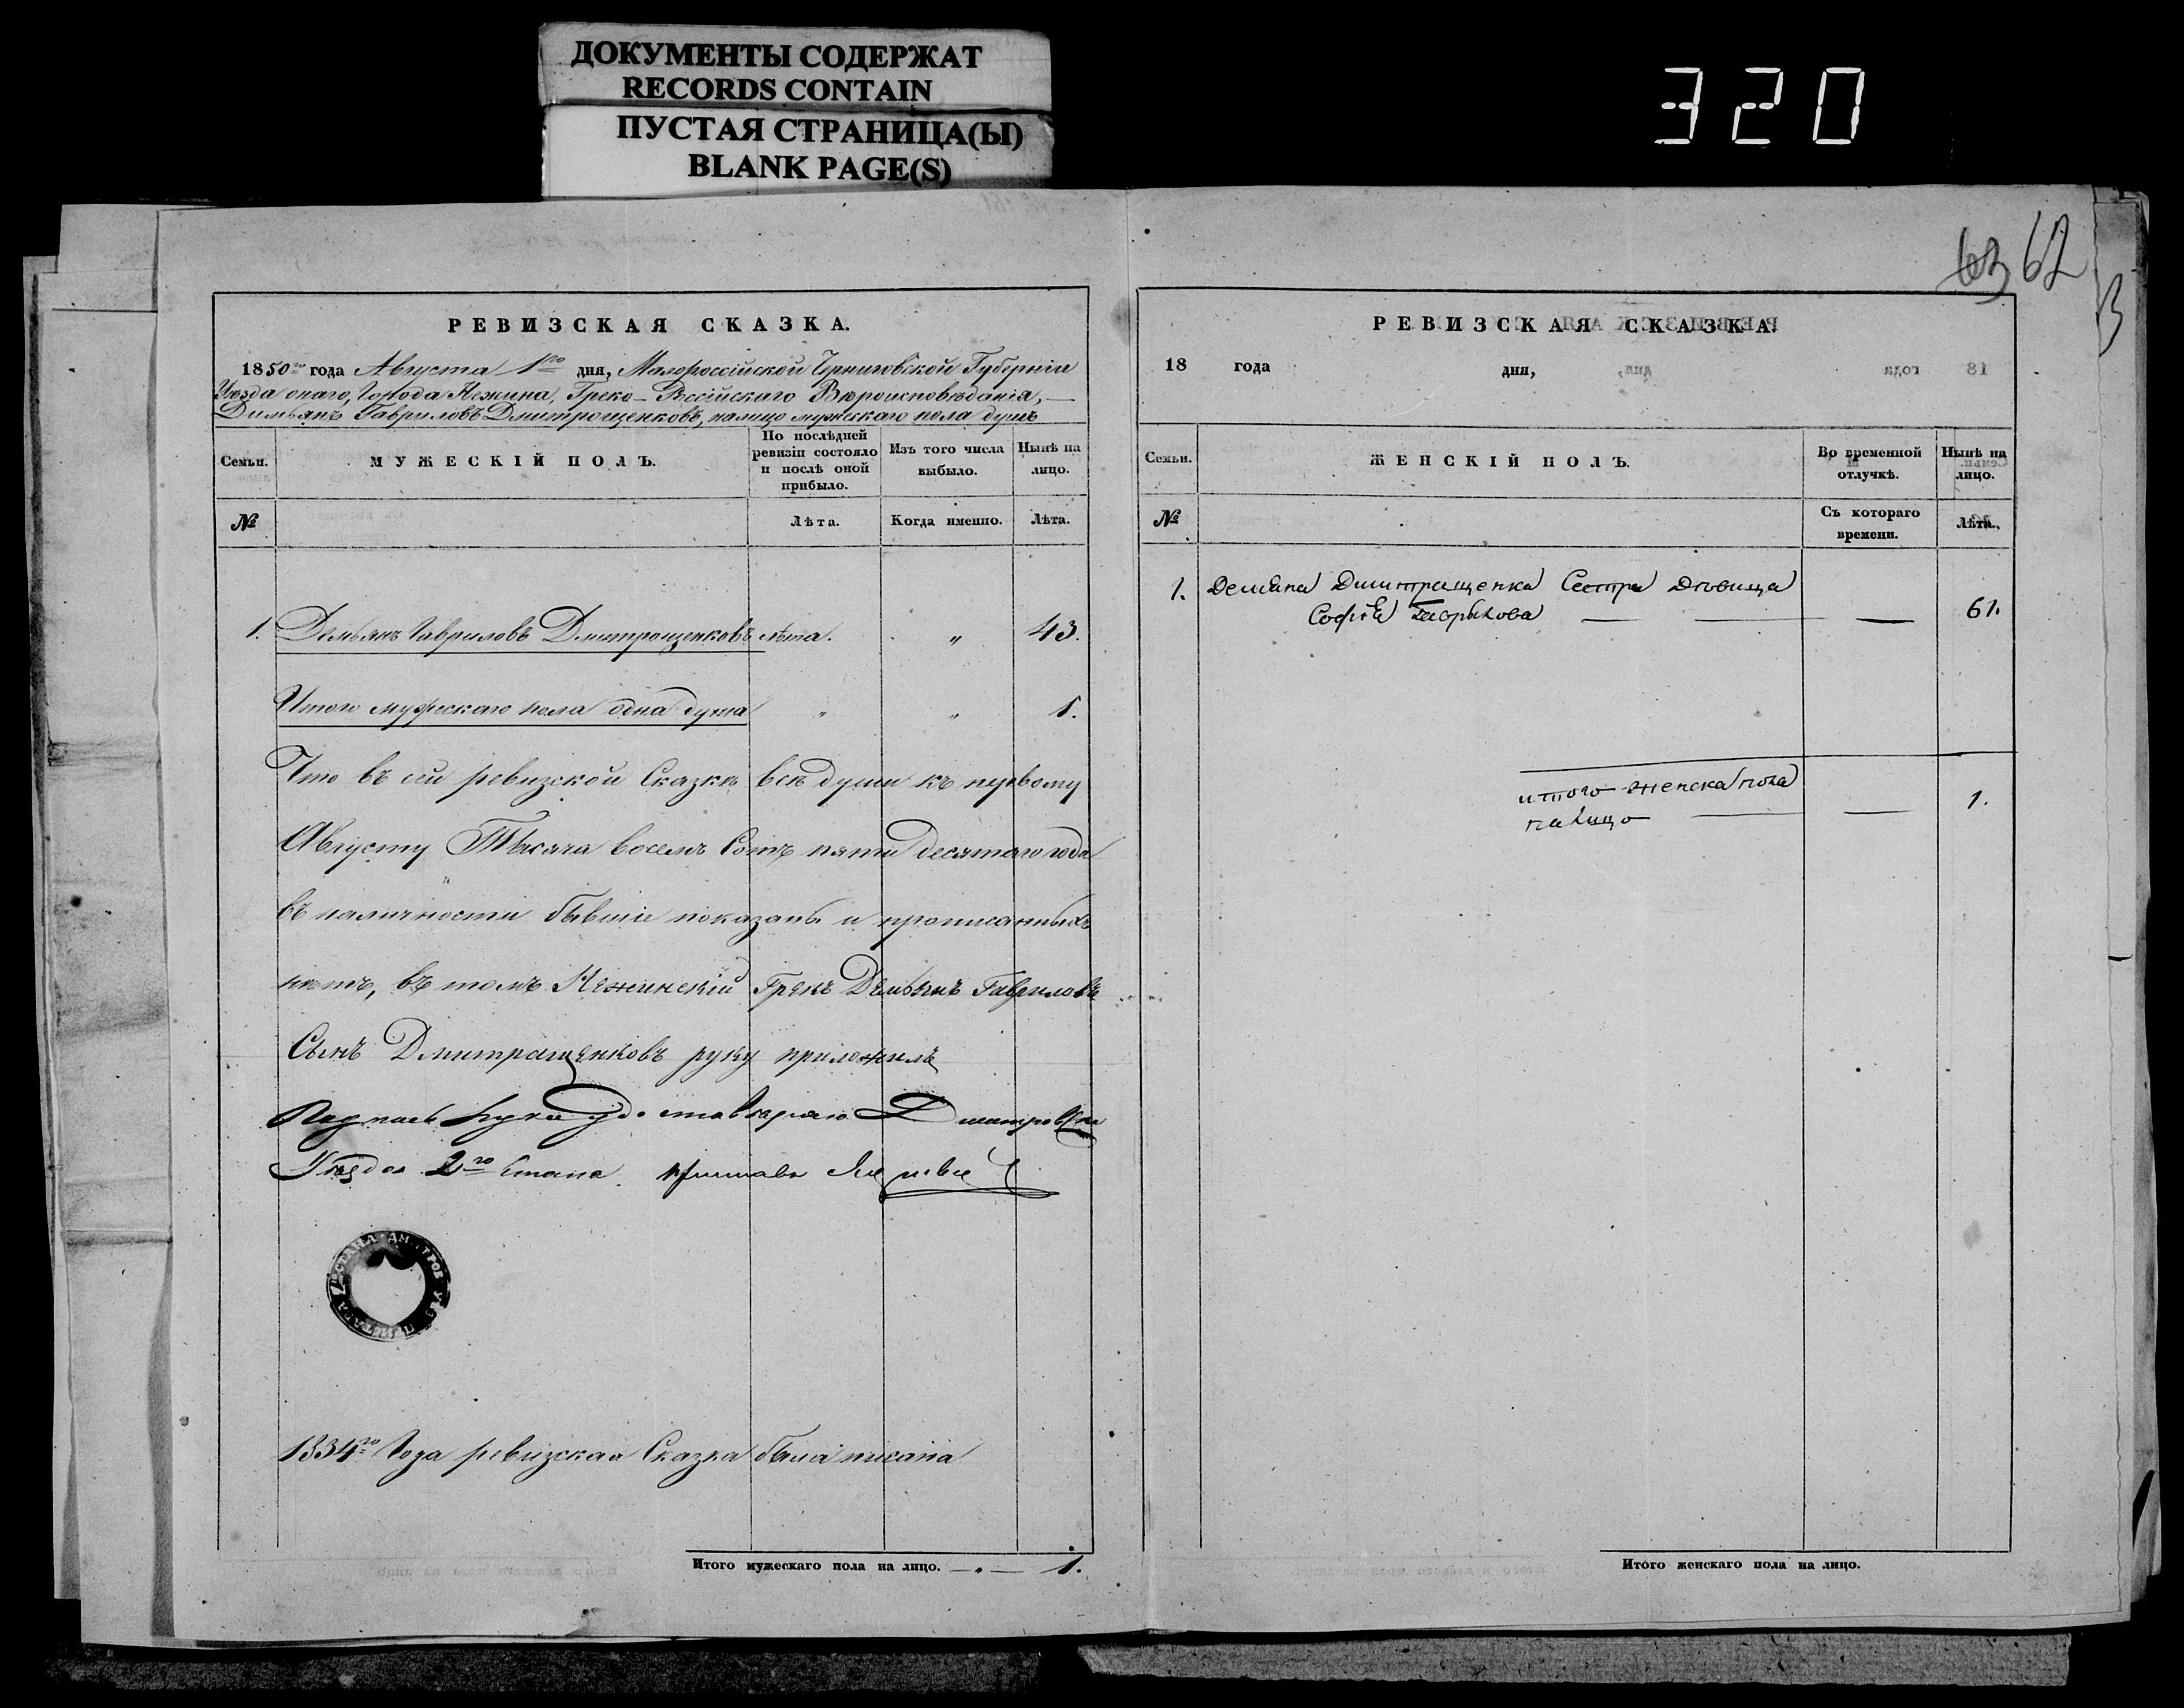 ДОКУМЕНТЫ СОДЕРЖАТ
RECORDS CONTAIN
ПУСТАЯ СТРАНИЦА(Ы)
BLANK PAGE(S)
320
63 62
РЕВИЗСКАЯ СКАЗКА.
1850го года Августа 1го дня, Малороссійской Черниговской Губерніи
Уѣзда онаго, Города Нежина, Греко-Россійскаго Вѣроисповѣданія,
Димьянъ Гавриловъ Дмитрощенковъ, налицо мужескаго пола душъ
Семьи.
МУЖЕСКІЙ ПОЛЪ.
По послѣдней ревизіи состояло и послѣ оной прибыло.
Изъ того числа выбыло.
Нынѣ на лицо.
№
Лѣта.
Когда именно.
Лѣта.
1. Демьянъ Гавриловъ Дмитрощенковъ лѣта. „ 43.
Итого мужескаго пола одна душа „ „ 1.
Что въ сей ревизской Сказкѣ всѣ души къ первому
Августу Тысяча восемъ Сотъ пяти десятаго года
въ наличности бывшіе показаны и прописанныхъ
нѣтъ, въ томъ Нежинскій Грекъ Демьянъ Гавриловъ
Сынъ Дмитращенковъ руку приложилъ
Дмитровска
Уѣзда 2го Стана приставъ
1834го Года ревизская Сказка была писана
Итого мужескаго пола на лицо. 1.
РЕВИЗСКАЯ СКАЗКА.
18 года дня,
Семьи.
ЖЕНСКІЙ ПОЛЪ.
Во временной отлучкѣ.
Нынѣ на лицо.
№
Съ котораго времени.
Лѣта.
1. Демяна Дмитращенка Сестра Дѣвица
Софія Гаврилова — — — 61.
итого женска пола
налицо — — 1.
Итого женскаго пола на лицо.